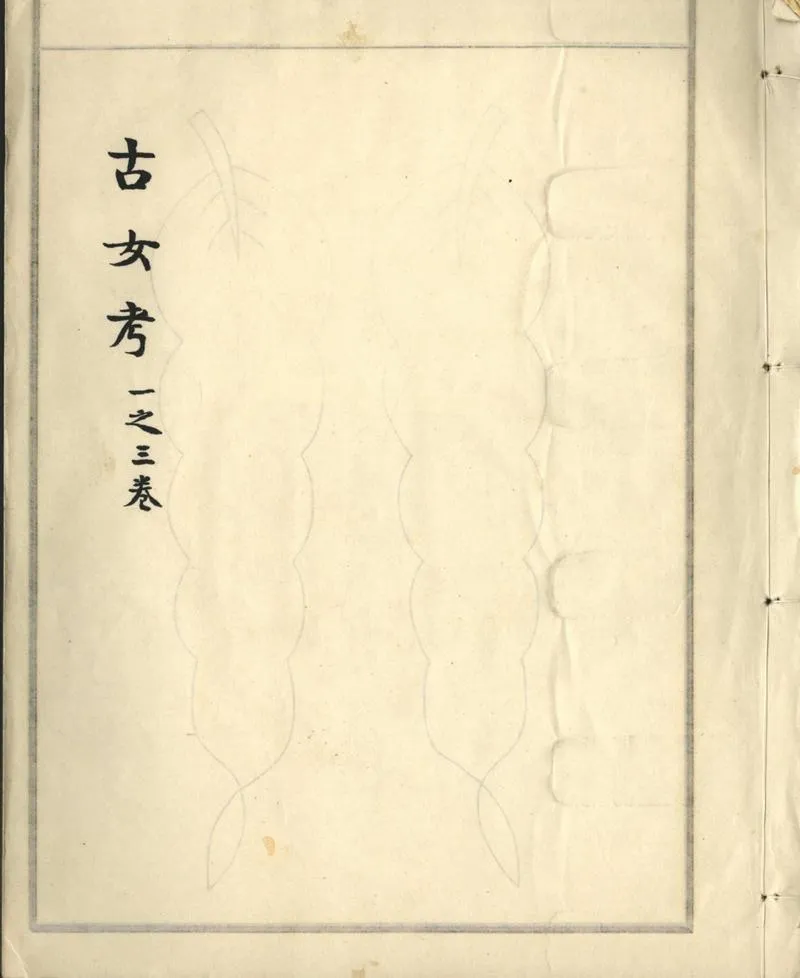 古女考一之三卷